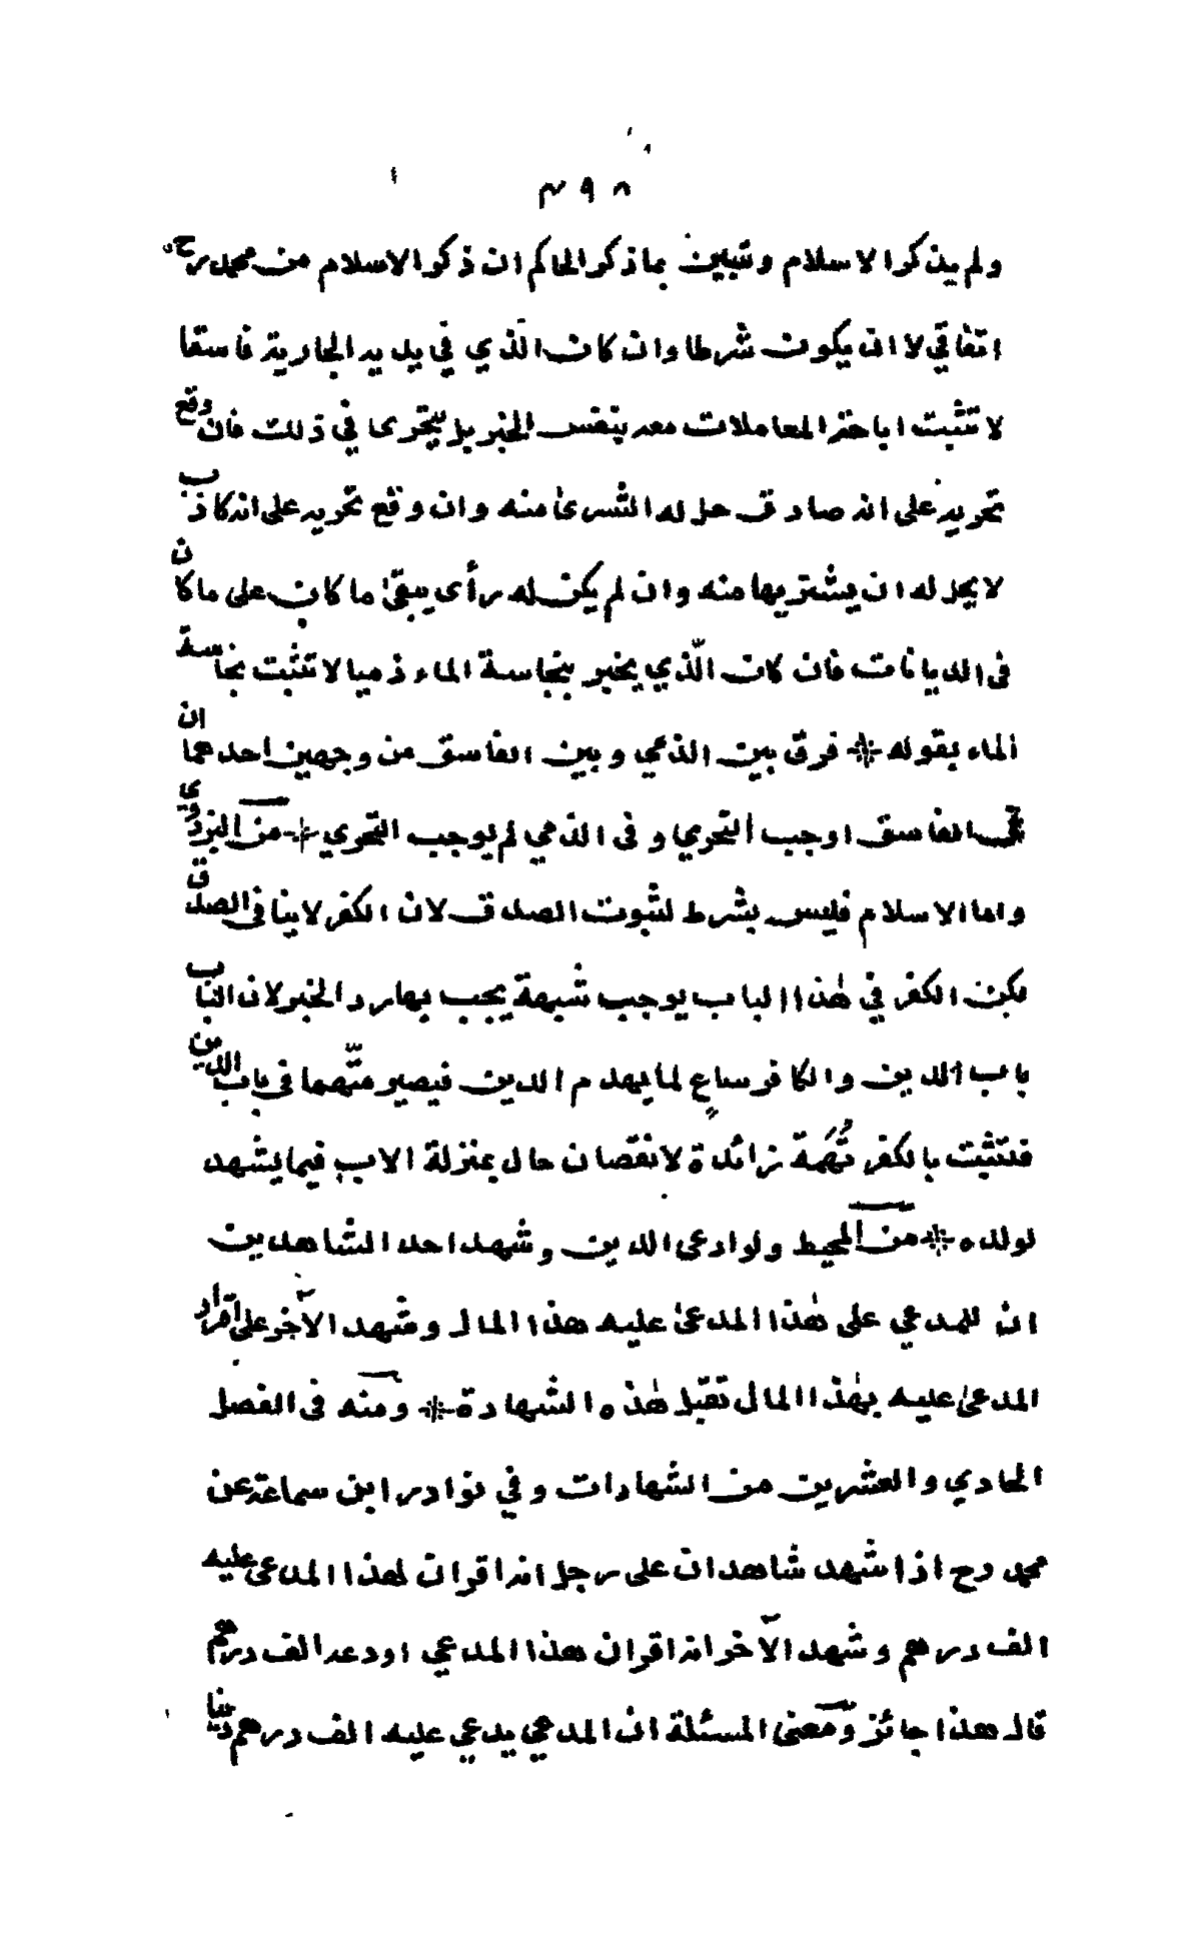 ٣٩٨
ولم يذكر الاسلام وتبين بما ذكر الحاكم ان ذكر الاسلام من محمد رح
اتفاقي لا ان يكون شرطا وان كان الّذي في يديه الجارية فاسقا
لا تثبت اباحة المعاملات معه بنفس الخبر بل يتحرى في ذلك فان وقع
تحريه على انه صادق حل له الشرىٰ منه وان وقع تحريه على انه كاذب
لا يحل له ان يشتريها منه وان لم يكن له رأى يبقىٰ ما كان على ما كان
فى الديانات فان كان الّذي يخبر بنجاسة الماء ذميا لا تثبت نجاسة
الماء بقوله * فرق بين الذمي وبين الفاسق من وجهين احدهما ان
فى الفاسق اوجب التحري وفى الذمي لم يوجب التحري * من البزدوي
واما الاسلام فليس بشرط لثبوت الصدق لان الكفر لا ينافى الصدق
لكن الكفر في هٰذا الباب يوجب شبهة يجب بها رد الخبر لان الباب
باب الدين والكافر ساعٍ لما يهدم الدين فيصير متّهما في باب الدين
فتثبت بالكفر تُهَمَة زائدة لا نقصان حال بمنزلة الاب فيما يشهد
لولده * من المحيط ولو ادعى الدين وشهد احد الشاهدين
ان للمدعي على هٰذا المدعىٰ عليه هذا المال وشهد الآخر على اقرار
المدعىٰ عليه بهٰذا المال تقبل هٰذه الشهادة * ومنه فى الفصل
الحادي والعشرين من الشهادات وفي نوادر ابن سماعة عن
محمد رح اذا شهد شاهدان على رجل انه اقر ان لهذا المدعى عليه
الف درهم وشهد الآخر انه اقر ان هذا المدعي اودعه الف درهم
قال هذا جائز ومعنى المسئلة ان المدعي يدعي عليه الف درهم دينا